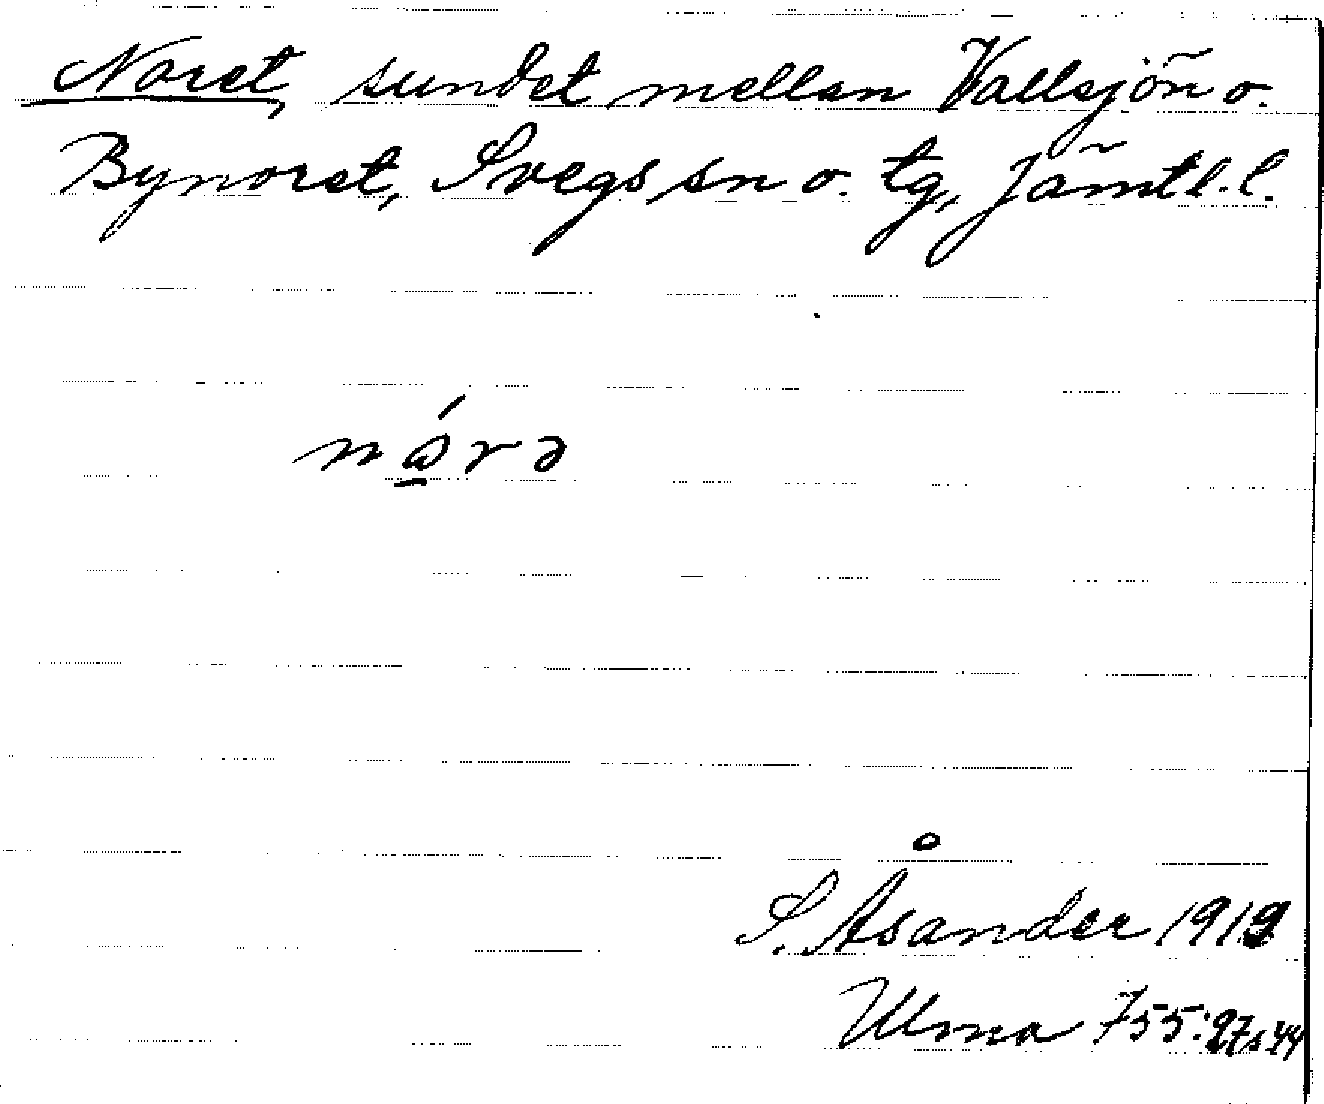 Noret, sundet mellan Vallsjön o.
Bynoret, Svegs sn o. tg, Jämtl. l.
nǻ̱rə
S. Åsander 1919
Ulma 755:27 s. 44